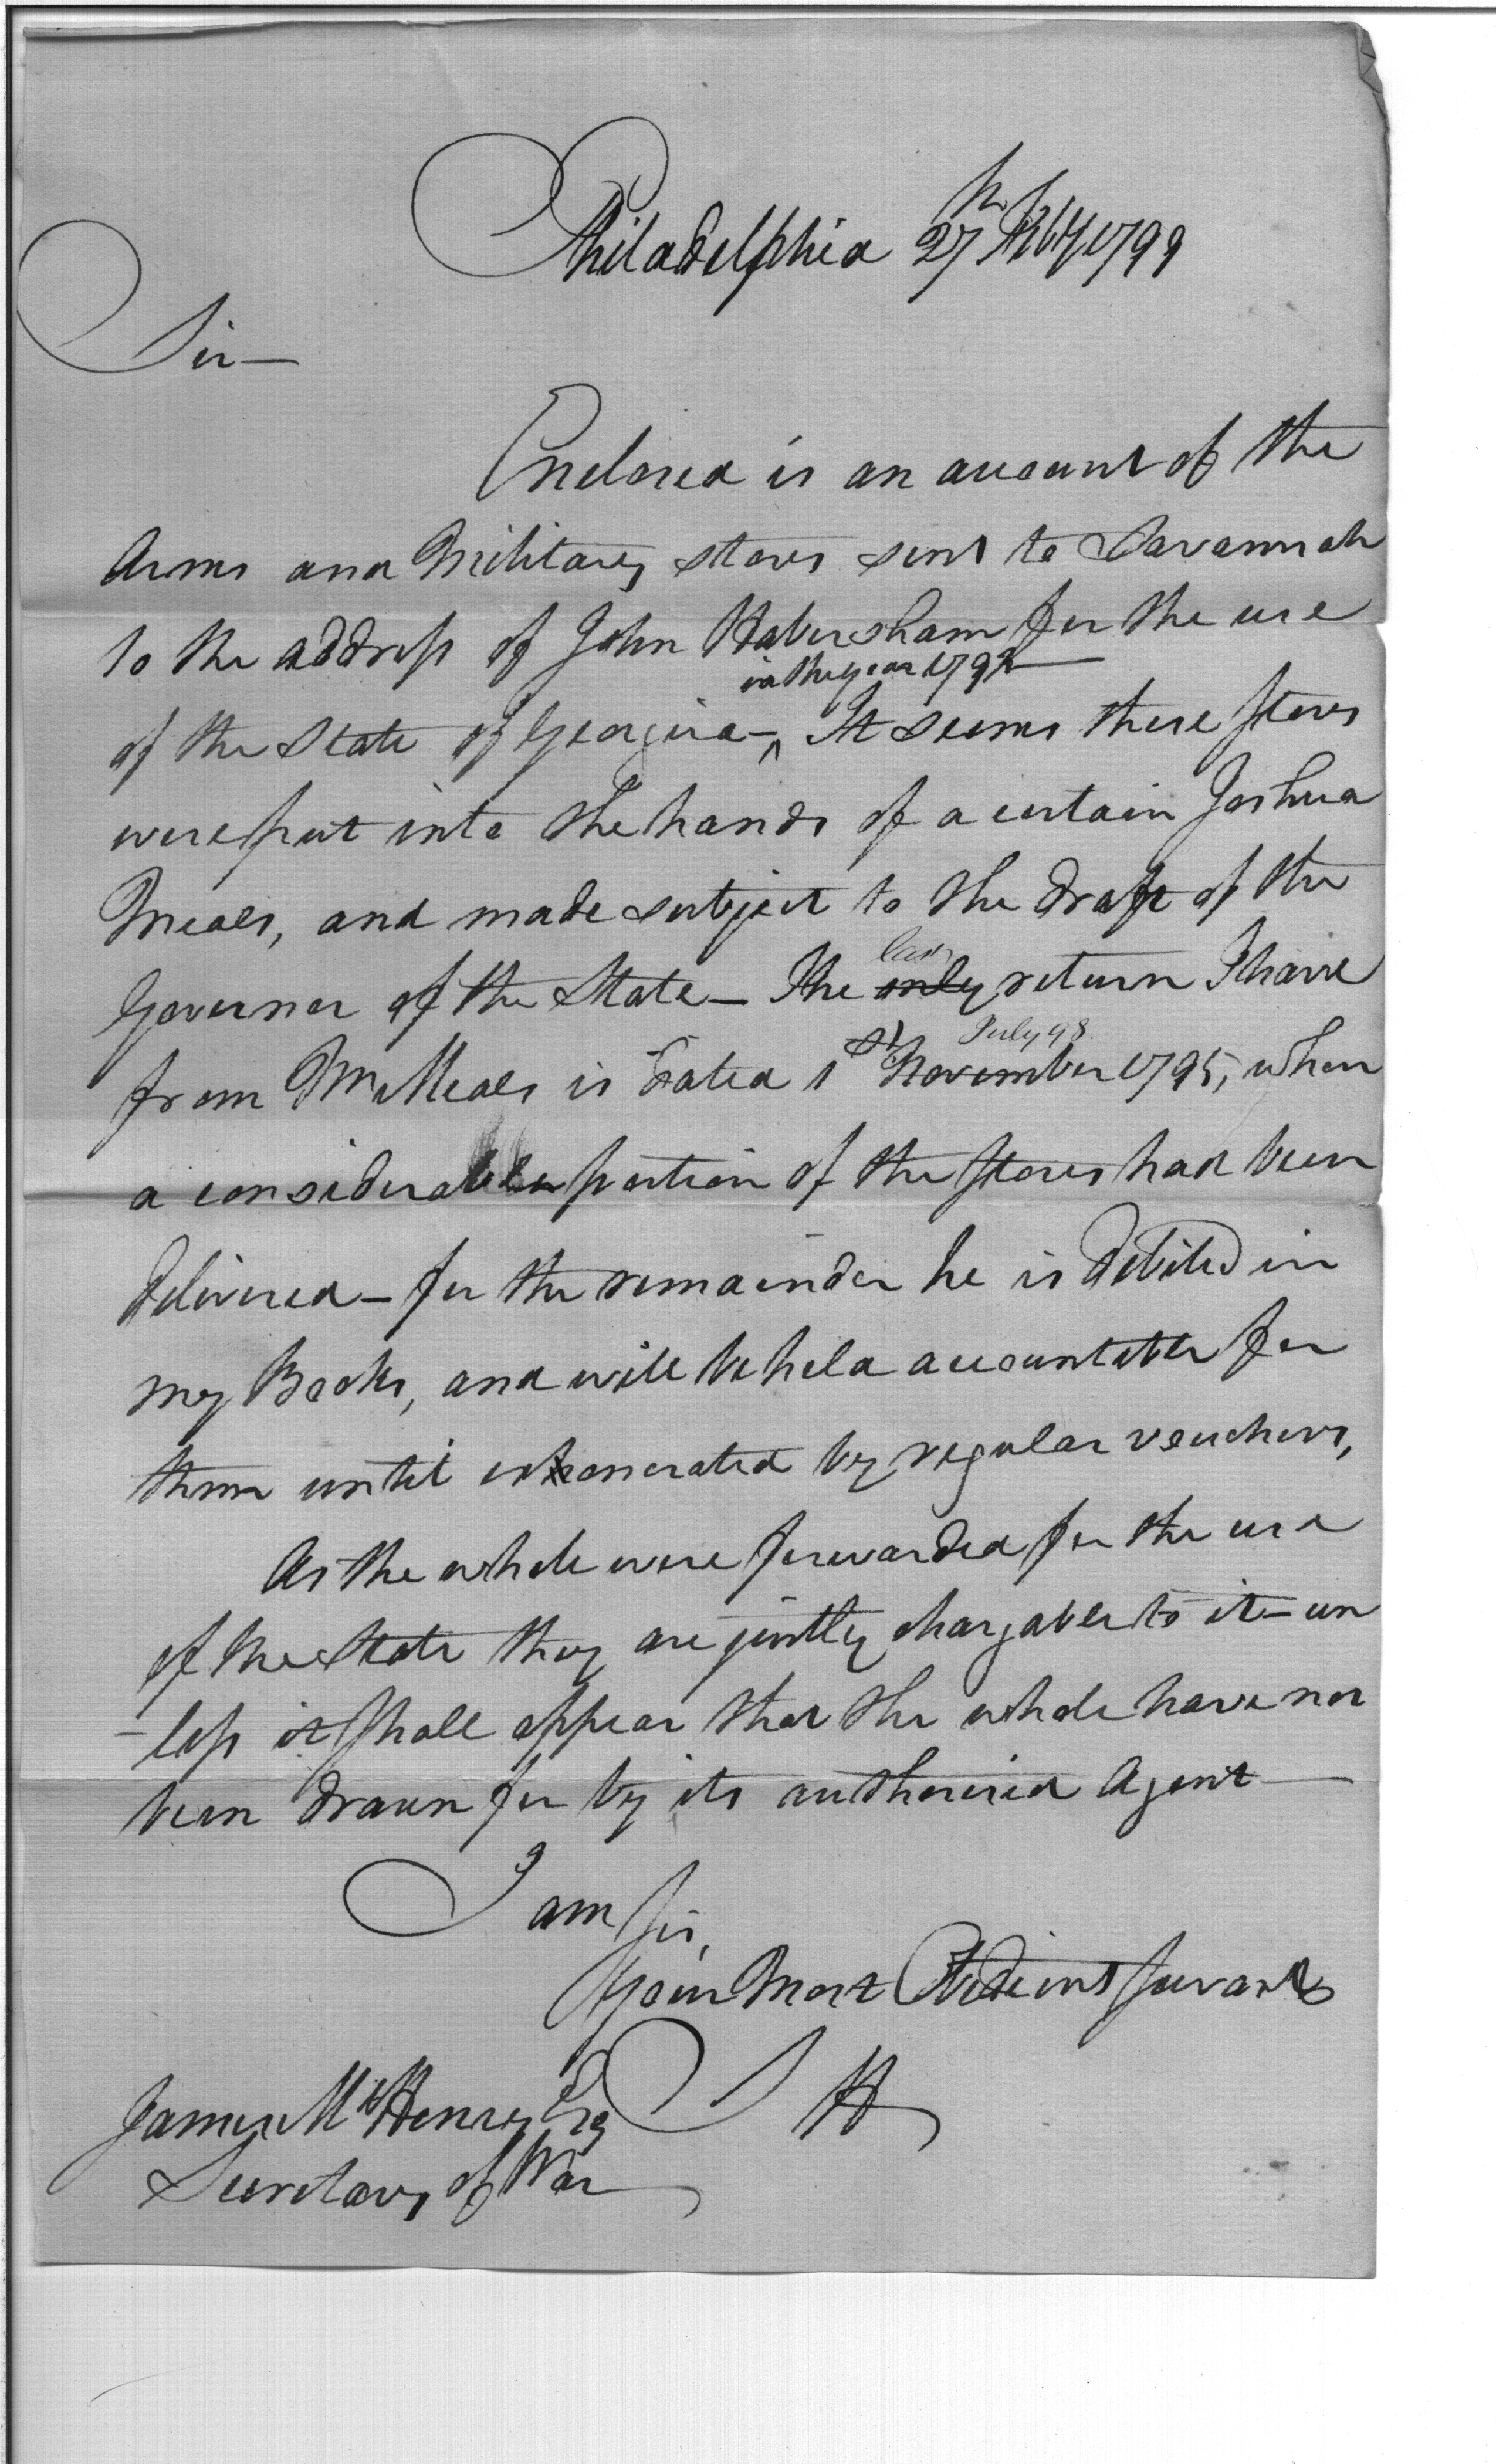 Philadelphia 27th Feby 1799
Sir—
Enclosed is an account of the
Arms and Military stores sent to Savannah
to the address of John Habersham for the use
in the year 1792
of the State of Georgia—^ It seems these stores
were put into the hands of a certain Joshua
Meals, and made subject to the draft of the
last
Governor of the State— The only return I have
July 98
from Mr Meals is dated 1st November 1795, when
a considerable portion of the stores had been
delivered— for the remainder he is debited in
my Books, and will be held accountable for
them until exonerated by regular vouchers,
As the whole were forwarded for the use
of the State they are justly chargable to it— un
-less it shall appear that the whole have not
been drawn for by its authorised Agent—
I am Sir,
Your Most Obedient Servant
S H
James McHenry Esq
Secretary of War